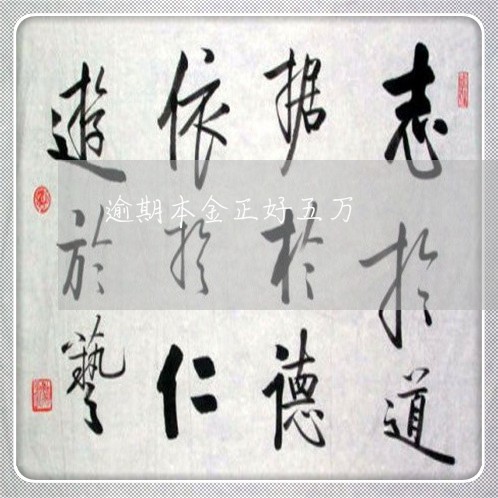 志於道
据於德
依於仁
遊於藝
逾期本金正好五万